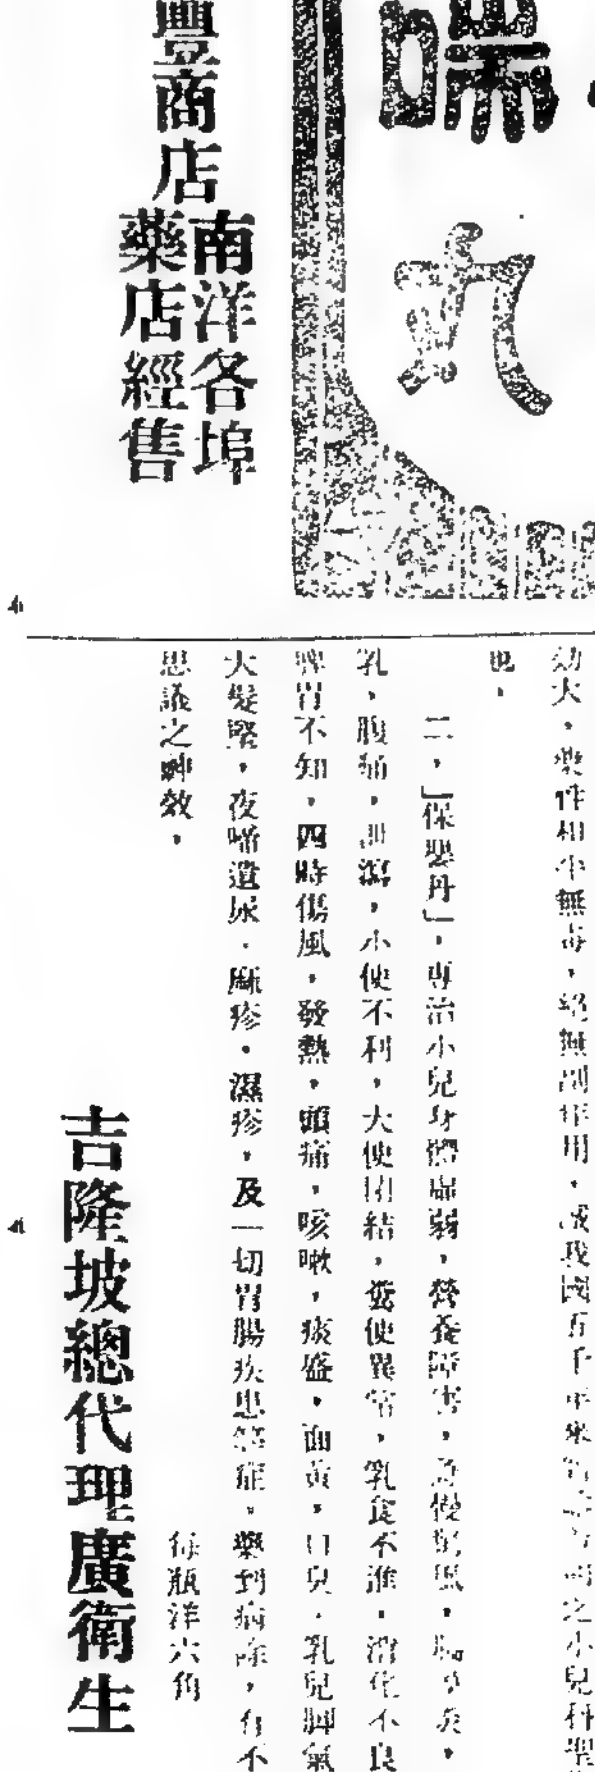 喘
丸
豐商店
南洋各埠
藥店經售
効大，藥性和平無毒，絕無副作用，成我國五千年來之小兒科聖
也，
二，「保嬰丹」，專治小兒身體虛弱，營養障害，急慢驚風，
乳，腹痛，泄瀉，小便不利，大便閉結，糞便異常，乳食不進，消化不良
脾胃不知，四時傷風，發熱，頭痛，咳嗽，痰盛，面黃，口臭，乳兒脚氣
大髮竪，夜啼遺尿，麻疹，濕疹，及一切胃腸疾患等症，藥到病除，有不
思議之神效，
每瓶洋六角
吉隆坡總代理廣衛生